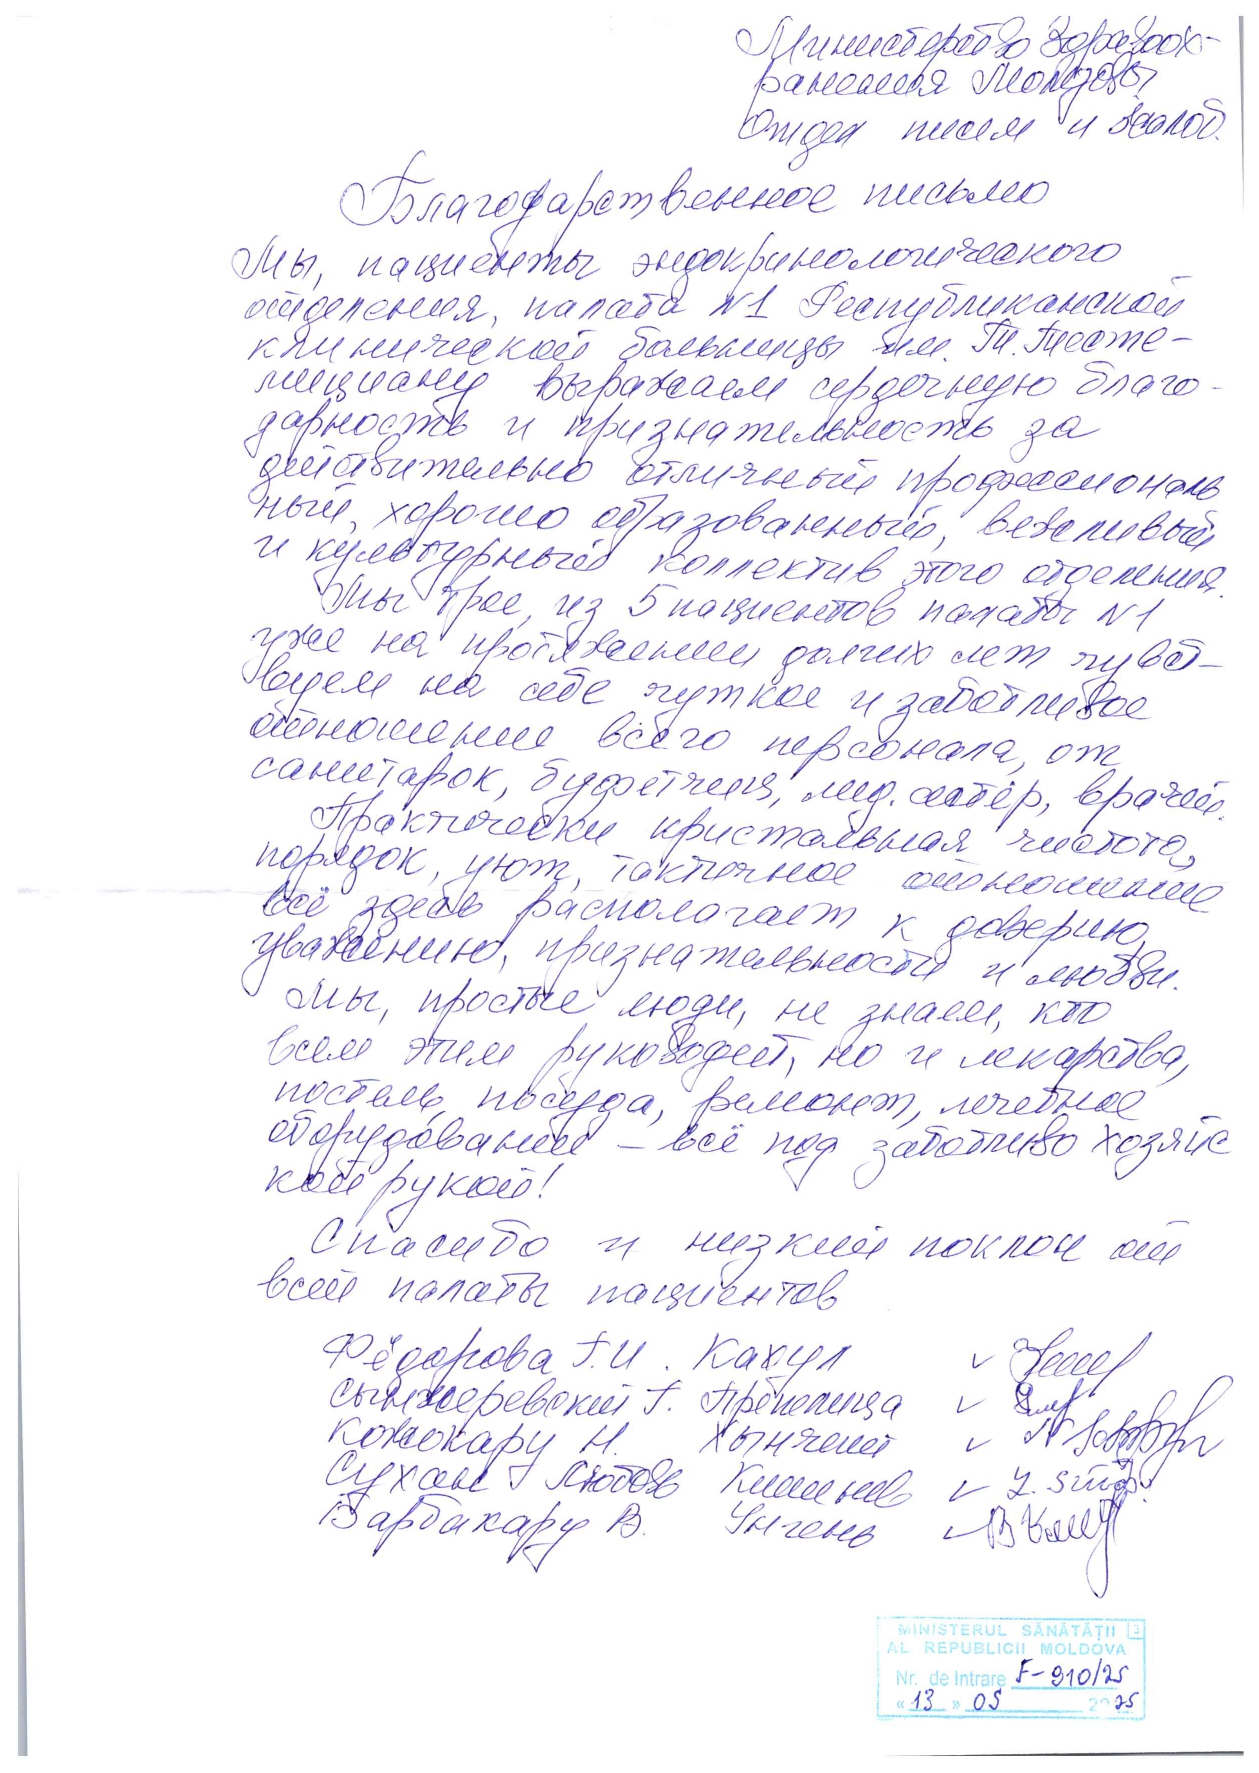 Министерство Здравоох-
ранения Молдовы
Отдел писем и жалоб.
Благодарственное письмо
Мы, пациенты эндокринологического
отделения, палата N1 Республиканской
клинической больницы им. Т. Тесте-
мицану выражаем сердечную благо-
дарность и признательность за
действительно отличный профессиональ
ный, хорошо образованный, вежливый
и культурный коллектив этого отделения.
Мы трое, из 5 пациентов палаты N1
уже на протяжении долгих лет чувст-
вуем на себе чуткое и заботливое
отношение всего персонала, от
санитарок, буфетчиц, мед. сестёр, врачей.
Практически кристальная чистота,
порядок, уют, тактичное отношение
всё здесь располагает к доверию,
уважению, признательности и любви.
Мы, простые люди, не знаем, кто
всем этим руководит, но и лекарства,
постель, посуда, ремонт, лечебное
оборудование – всё под заботливо хозяйс
кой рукой!
Спасибо и низкий поклон от
всей палаты пациентов
Фёдорова Г.И. Кахул
Сынжеревский Г. Препелица
Кожокару Н. Хынчешт
Сухан Любовь Кишинев
Барбакару В. Унгень
MINISTERUL SĂNĂTĂȚII 3
AL REPUBLICII MOLDOVA
Nr. de Intrare F-910/25
« 13 » 05 2025